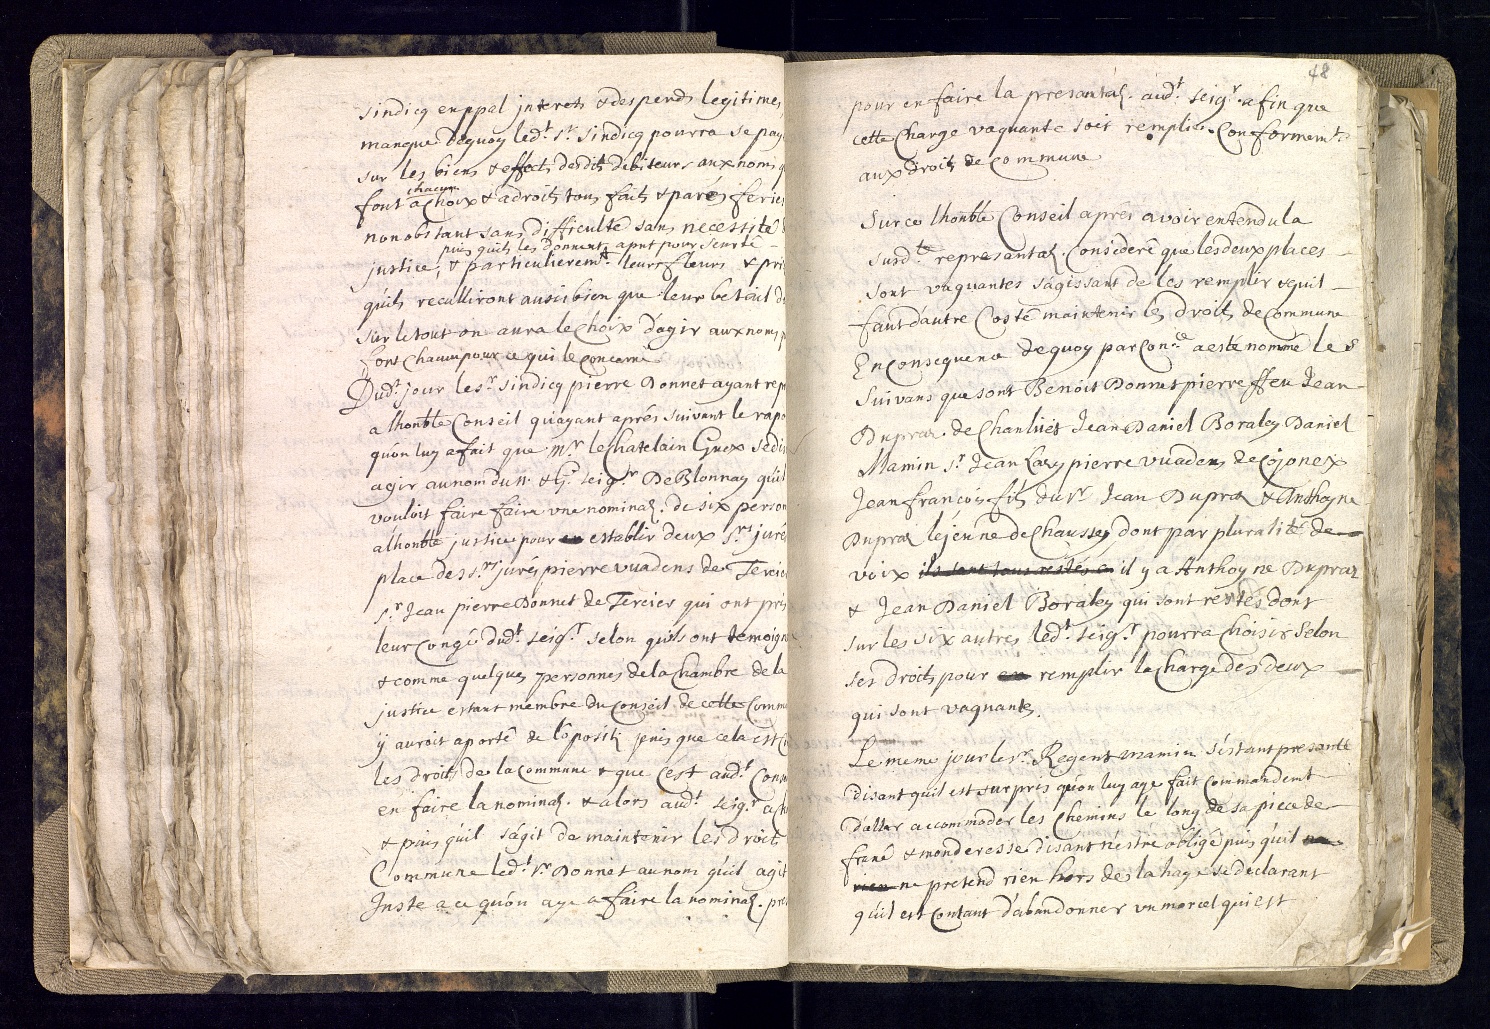 sindicq en ppal jnterets & despends legitimes
manque dequoy led.t s.r sindicq pourra se pay
sur les biens & effects desdits debiteurs aux noms q
font a chacun Choix & a droits tous faits & parés feries
nonobstant sans difficulté sans necessité
puis quils les donnent a pnt pour seurté
justice, & particulierem.t leurs fleurs & pri
quils reculliront aussi bien que leur betail d
sur le tout on aura le choix d'agir aux noms
font Chacun pour ce qui le concerne
Dud.t jour le s.r sindicq pierre Donnet ayant rep
a lhonble Conseil quiayant aprés suivant le rapo
qu'on luy a fait que m.r le Chatelain Guex se di
agir au nom du N. & G. seig.r De Blonnay quil
vouloit faire faire vne nominaõ. de six person
a lhonble justice pour en establir deux s.rs juré
place des s.rs jurés pierre vuadens de Tercie
s.r Jean pierre Donnet de Tercier qui ont pris
leur Congé dud.t seig.r selon quils ont temoign
& comme quelques personnes de la Chambre de la
justice estant membre du Conseil de cette Comm
ÿ auroit aporté de l'opositõ puis que cela est
les droits de la Commune & que c'est aud.t Cons
en faire la nominaõ. & alors aud.t seig.r a ch
& puis quil s'agit de maintenir les droits
Commune led.t s.r Donnet au nom quil agit
Inste a ce qu'on aye a faire la nominaõ. pre
48
pour en faire la presantaõ. aud.t seig.r afin que
cette Charge vaquante soit remplie. Conformem.t
aux droits de Commune
Sur ce lhonble Conseil aprés avoir entendu la
susd.te representaõ. Consideré que les deux places
sont vaquantes s'agissant de les remplir & quil
faut d'autre Costé maintenir les droits de Commune
En consequence de quoy par Con.ce a esté nommé les
suivans que sont Benoit Donnet pierre ffeu Jean
Dupraz de Chanliiet Jean Daniel Boraley Daniel
Mamin s.r Jean Lary pierre vuadens de Cojonex
Jean francois fils du s.r Jean Dupraz & Anthoyne
Dupraz lejeune de Chaussey dont par pluralité de
voix ils sont tous restés e il y a Anthoyne Dupraz
& Jean Daniel Boraley qui sont restés dont
sur les six autres led.t seig.r pourra choisir selon
ses droits pour en remplir la Charge des deux
qui sont vaquants.
Le meme jour le s.r Regent mamin s'estant presanté
disant quil est surpris qu'on luy aye fait Commandemt
d'aller accommoder les Chemins le long de sa piece de
frané & monderesse disant n'estre obligé puis qu'il ne
rien ne pretend rien hors de la haye se declarant
qu'il est Contant d'abandonner vn morcel qui est